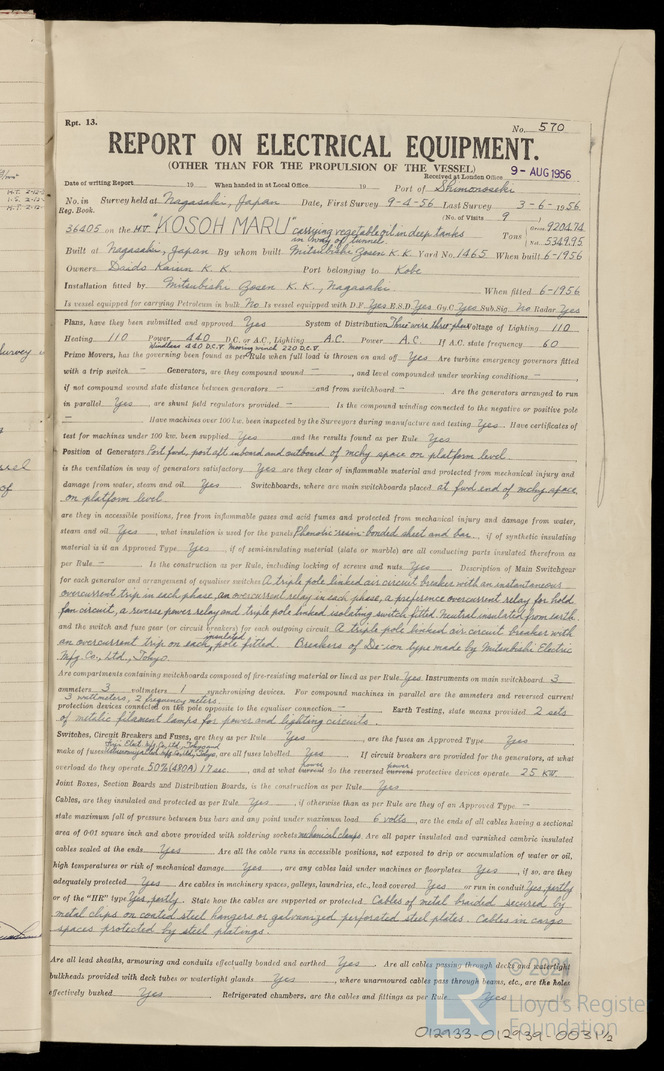 Rpt. 13.
No. 570
REPORT ON ELECTRICAL EQUIPMENT.
(OTHER THAN FOR THE PROPULSION OF THE VESSEL)
Received at London Office 9-AUG 1956
Date of writing Report 19 When handed in at Local Office 19 Port of Shimonoseki
No. in Reg. Book. Survey held at Nagasaki, Japan Date, First Survey 9-4-56 Last Survey 3-6-1956
(No. of Visits 9)
36405 on the M.V. "KOSOH MARU" carrying vegetable oil in deep tanks Tons Gross 9204.74
in way of tunnel. Net 5349.95
Built at Nagasaki, Japan By whom built Mitsubishi Zosen K.K. Yard No. 1465 When built 6-1956
Owners Daido Kaiun K.K. Port belonging to Kobe
Installation fitted by Mitsubishi Zosen K.K., Nagasaki. When fitted 6-1956
Is vessel equipped for carrying Petroleum in bulk No Is vessel equipped with D.F. Yes E.S.D. Yes Gy.C. Yes Sub.Sig. No Radar Yes
Plans, have they been submitted and approved Yes System of Distribution Three wire three phase Voltage of Lighting 110
Heating 110 Power 440 D.C. or A.C., Lighting A.C. Power A.C. If A.C. state frequency 60
Windlass 440 D.C.V. Mooring winch 220 D.C.V.
Prime Movers, has the governing been found as per Rule when full load is thrown on and off Yes Are turbine emergency governors fitted
with a trip switch - Generators, are they compound wound -, and level compounded under working conditions -,
if not compound wound state distance between generators - and from switchboard - Are the generators arranged to run
in parallel Yes, are shunt field regulators provided - Is the compound winding connected to the negative or positive pole
- Have machines over 100 kw. been inspected by the Surveyors during manufacture and testing Yes. Have certificates of
test for machines under 100 kw. been supplied Yes and the results found as per Rule Yes
Position of Generators Port fwd, port aft inboard and outboard of mchy space on platform level
is the ventilation in way of generators satisfactory Yes are they clear of inflammable material and protected from mechanical injury and
damage from water, steam and oil Yes Switchboards, where are main switchboards placed at fwd end of mchy space,
on platform level
are they in accessible positions, free from inflammable gases and acid fumes and protected from mechanical injury and damage from water,
steam and oil Yes, what insulation is used for the panels Phenolic resin-bonded sheet and bar, if of synthetic insulating
material is it an Approved Type Yes, if of semi-insulating material (slate or marble) are all conducting parts insulated therefrom as
per Rule - Is the construction as per Rule, including locking of screws and nuts Yes Description of Main Switchgear
for each generator and arrangement of equaliser switches A triple pole linked air circuit breaker with an instantaneous
overcurrent trip in each phase, an overcurrent relay in each phase, a preference overcurrent relay for hold
fan circuit, a reverse power relay and triple pole linked isolating switch fitted. Neutral insulated from earth.
and the switch and fuse gear (or circuit breakers) for each outgoing circuit A triple pole linked air circuit breaker with
an overcurrent trip on each insulated pole fitted. Breakers of De-ion type made by Mitsubishi Electric
Mfg. Co., Ltd., Tokyo.
Are compartments containing switchboards composed of fire-resisting material or lined as per Rule Yes Instruments on main switchboard 3
ammeters 3 voltmeters 1 synchronising devices. For compound machines in parallel are the ammeters and reversed current
3 wattmeters, 2 frequency meters.
protection devices connected on the pole opposite to the equaliser connection - Earth Testing, state means provided 2 sets
of metalic filament lamps for power and lighting circuits.
Switches, Circuit Breakers and Fuses, are they as per Rule Yes, are the fuses an Approved Type Yes,
make of fuses Fuji Elect. Mfg Co. Ltd., Tokyo and are all fuses labelled Yes If circuit breakers are provided for the generators, at what
overload do they operate 50% (480A) 17 sec., and at what power current do the reversed power current protective devices operate 25 KW.
Joint Boxes, Section Boards and Distribution Boards, is the construction as per Rule Yes
Cables, are they insulated and protected as per Rule Yes, if otherwise than as per Rule are they of an Approved Type -
state maximum fall of pressure between bus bars and any point under maximum load 6 volts, are the ends of all cables having a sectional
area of 0·01 square inch and above provided with soldering sockets mechanical clamps. Are all paper insulated and varnished cambric insulated
cables sealed at the ends Yes Are all the cable runs in accessible positions, not exposed to drip or accumulation of water or oil,
high temperatures or risk of mechanical damage Yes, are any cables laid under machines or floorplates Yes, if so, are they
adequately protected Yes Are cables in machinery spaces, galleys, laundries, etc., lead covered Yes or run in conduit Yes, partly
or of the "HR" type Yes, partly. State how the cables are supported or protected Cables of metal braided secured by
metal clips on coated steel hangers or galvanized perforated steel plates. Cables in cargo
spaces protected by steel platings.
Are all lead sheaths, armouring and conduits effectually bonded and earthed Yes Are all cables passing through decks and watertight
bulkheads provided with deck tubes or watertight glands Yes, where unarmoured cables pass through beams, etc., are the holes
effectively bushed Yes Refrigerated chambers, are the cables and fittings as per Rule Yes
© 2021
Lloyd's Register
Foundation
012933-012939-0031½